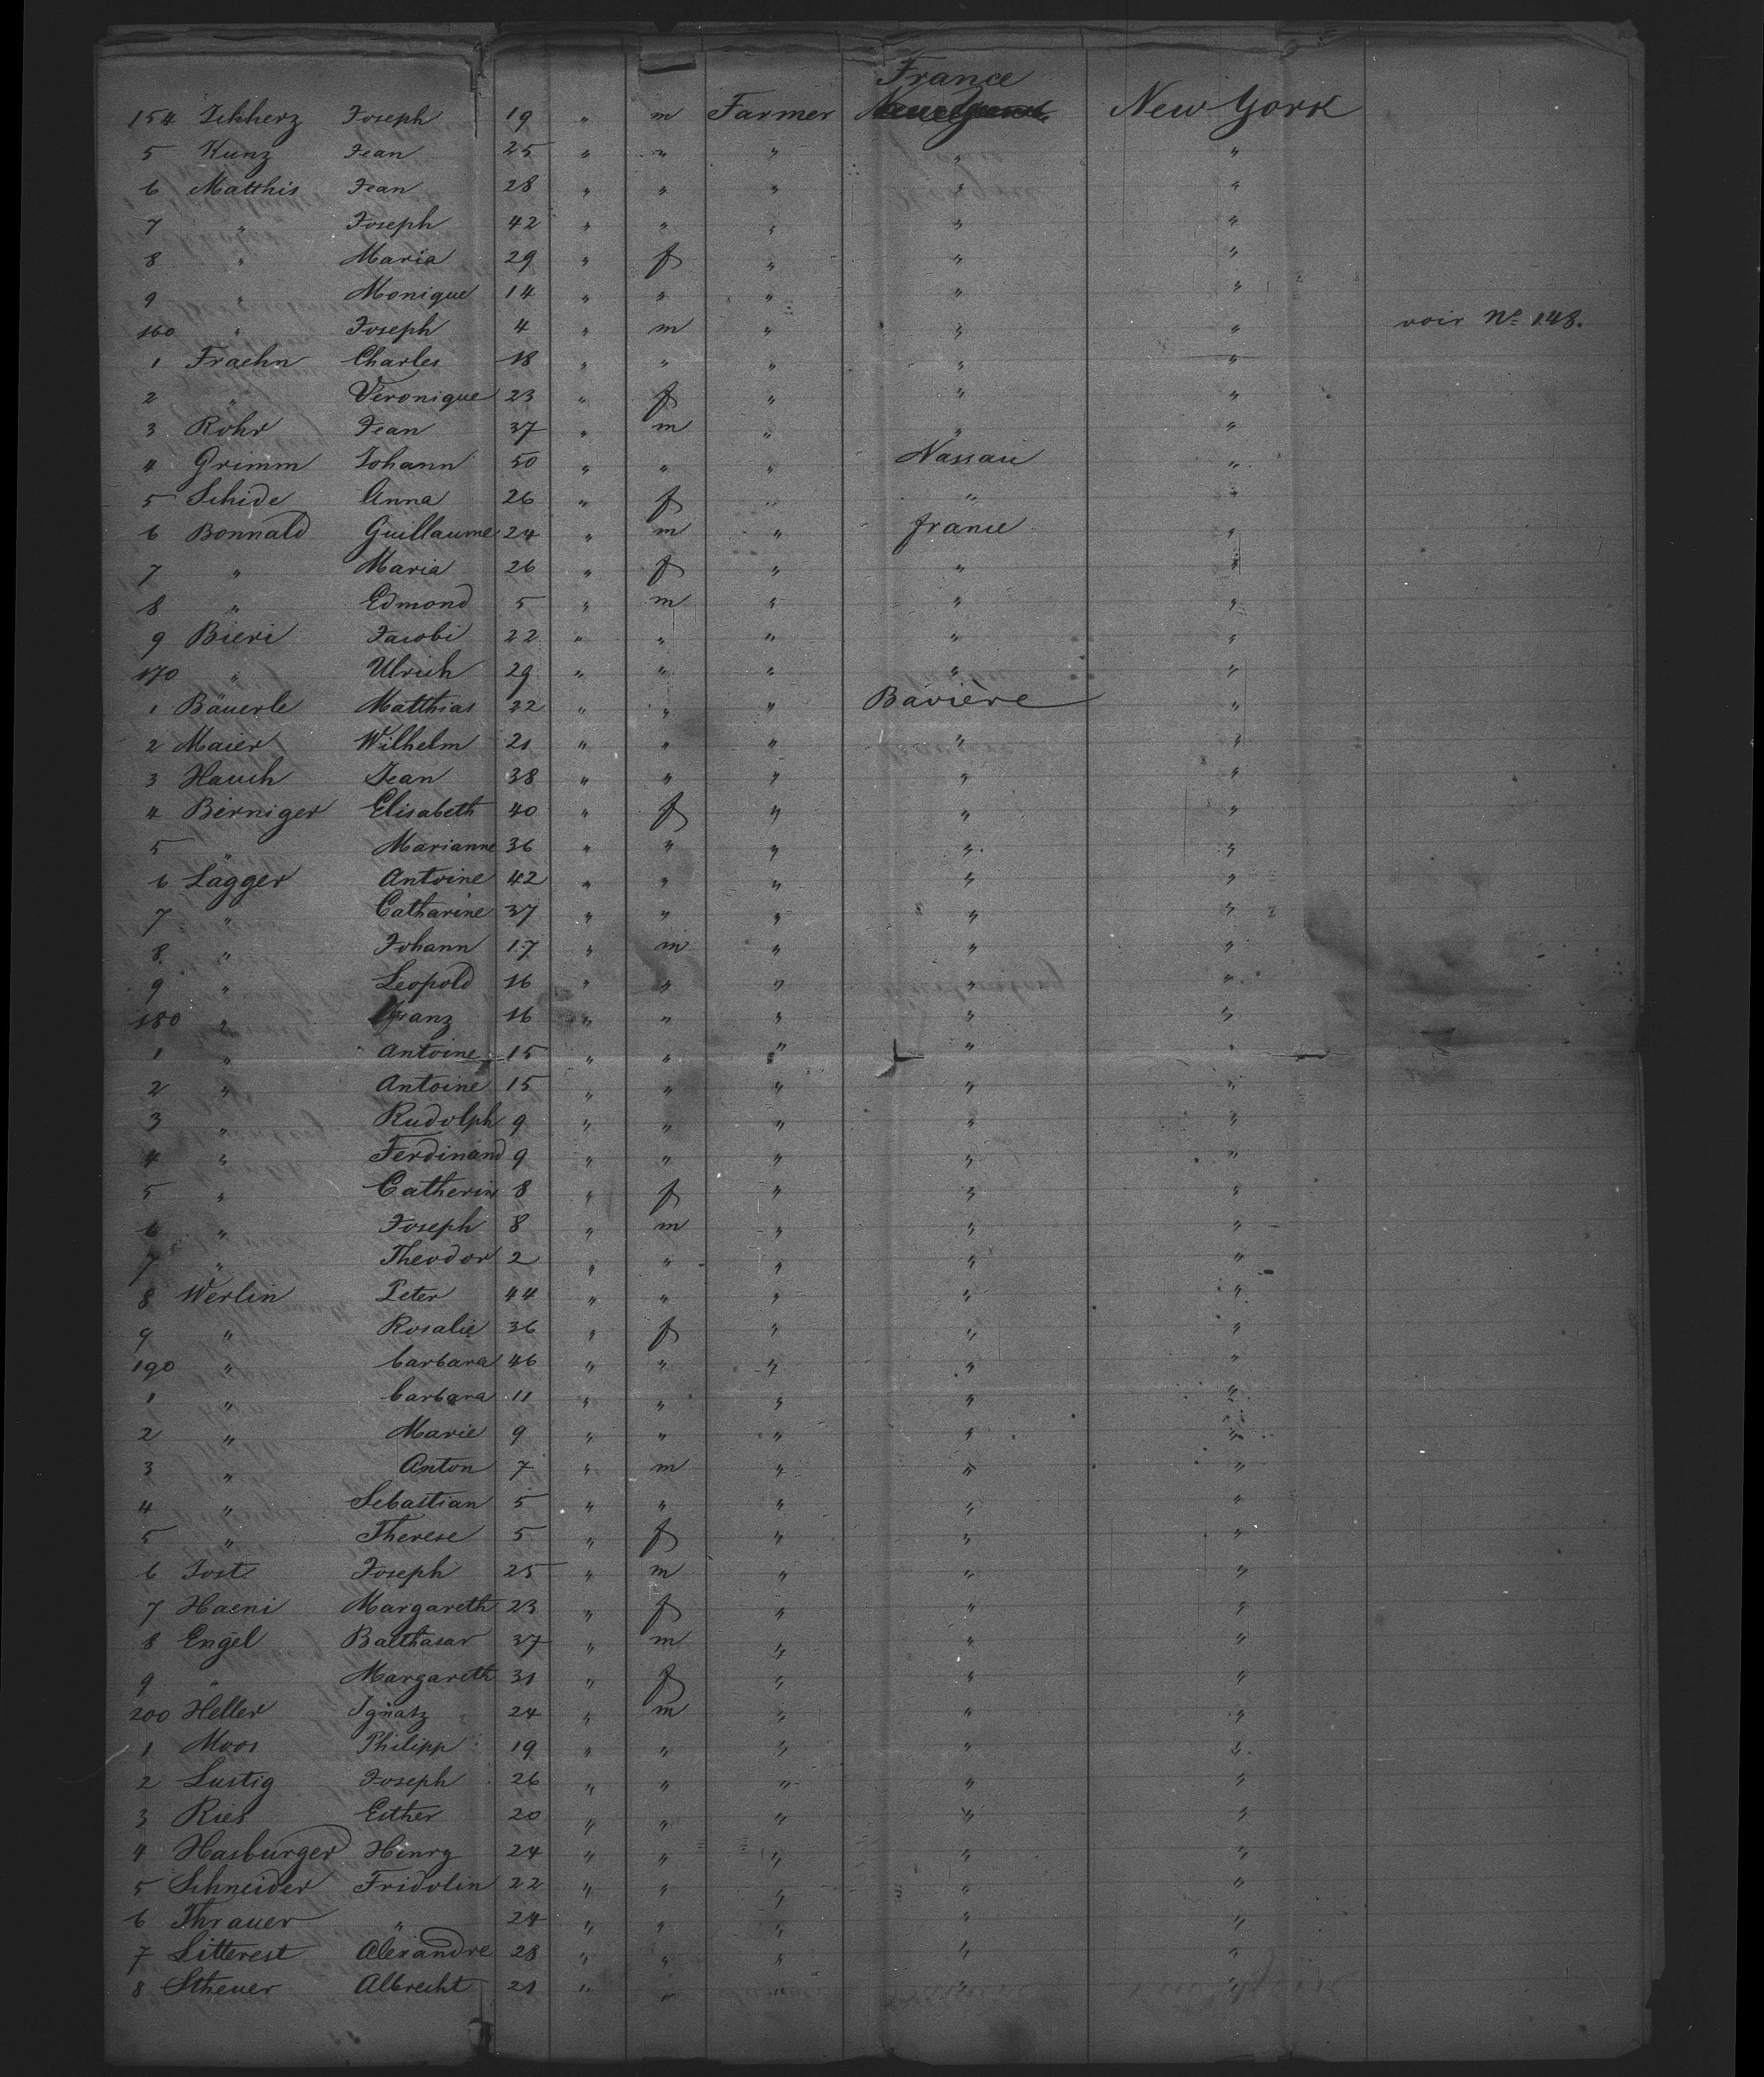 France
154 Schherz Joseph 19 " m Farmer New York
5 Kunz Jean 25 " " " " "
6 Matthis Jean 28 " " " " "
7 " Joseph 42 " " " " "
8 " Maria 29 " f " " "
9 " Monique 14 " " " " "
160 " Joseph 4 " m " " " voir No 148.
1 Fraehn Charles 18 " " " " "
2 " Veronique 23 " f " " "
3 Rohr Jean 37 " m " " "
4 Grimm Johann 50 " " " Nassau "
5 Schide Anna 26 " f " " "
6 Bonnald Guillaume 24 " m " france "
7 " Maria 26 " f " " "
8 " Edmond 5 " m " " "
9 Bieri Jacobi 22 " " " " "
170 " Ulrich 29 " " " " "
1 Bäuerle Matthias 22 " " " Bavière "
2 Maier Wilhelm 21 " " " " "
3 Hauch Jean 38 " " " " "
4 Berniger Elisabeth 40 " f " " "
5 " Marianne 36 " " " " "
6 Lägger Antoine 42 " " " " "
7 " Catharine 37 " " " " "
8 " Johann 17 " m " " "
9 " Leopold 16 " " " " "
180 " Franz 16 " " " " "
1 " Antoine 15 " " " " "
2 " Antoine 15 " " " " "
3 " Rudolph 9 " " " " "
4 " Ferdinand 9 " " " " "
5 " Catherin 8 " f " " "
6 " Joseph 8 " m " " "
7 " Theodor 2 " " " " "
8 Werlin Peter 44 " " " " "
9 " Rosalie 36 " f " " "
190 " barbara 46 " " " " "
1 " barbara 11 " " " " "
2 " Marie 9 " " " " "
3 " Anton 7 " m " " "
4 " Sebastian 5 " " " " "
5 " Therese 5 " f " " "
6 Jost Joseph 25 " m " " "
7 Haeni Margareth 23 " f " " "
8 Engel Balthasar 37 " m " " "
9 " Margareth 31 " f " " "
200 Heller Ignatz 24 " m " " "
1 Moos Philipp 19 " " " " "
2 Lustig Joseph 26 " " " " "
3 Ries Esther 20 " " " " "
4 Hasburger Henry 24 " " " " "
5 Schneider Fridolin 22 " " " " "
6 Thrauer " 24 " " " " "
7 Litterest Alexandre 28 " " " " "
8 Stheuer Albrecht 21 " " " " "